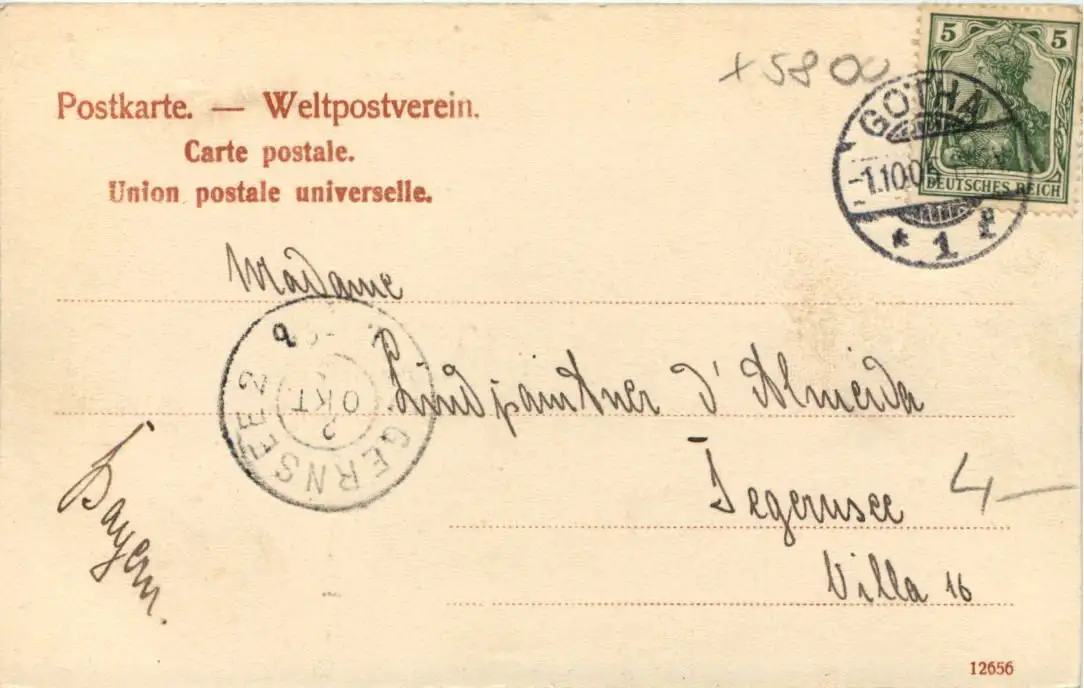 5 5
DEUTSCHES REICH
+ 5800
GOTHA
-1.10.05
* 1 *
Postkarte. — Weltpostverein.
Carte postale.
Union postale universelle.
Madame
Lindpaintner d'Almeida
Tegernsee
Villa 16
Bayern.
4—
GERNSEE 2
2
OKT
12656